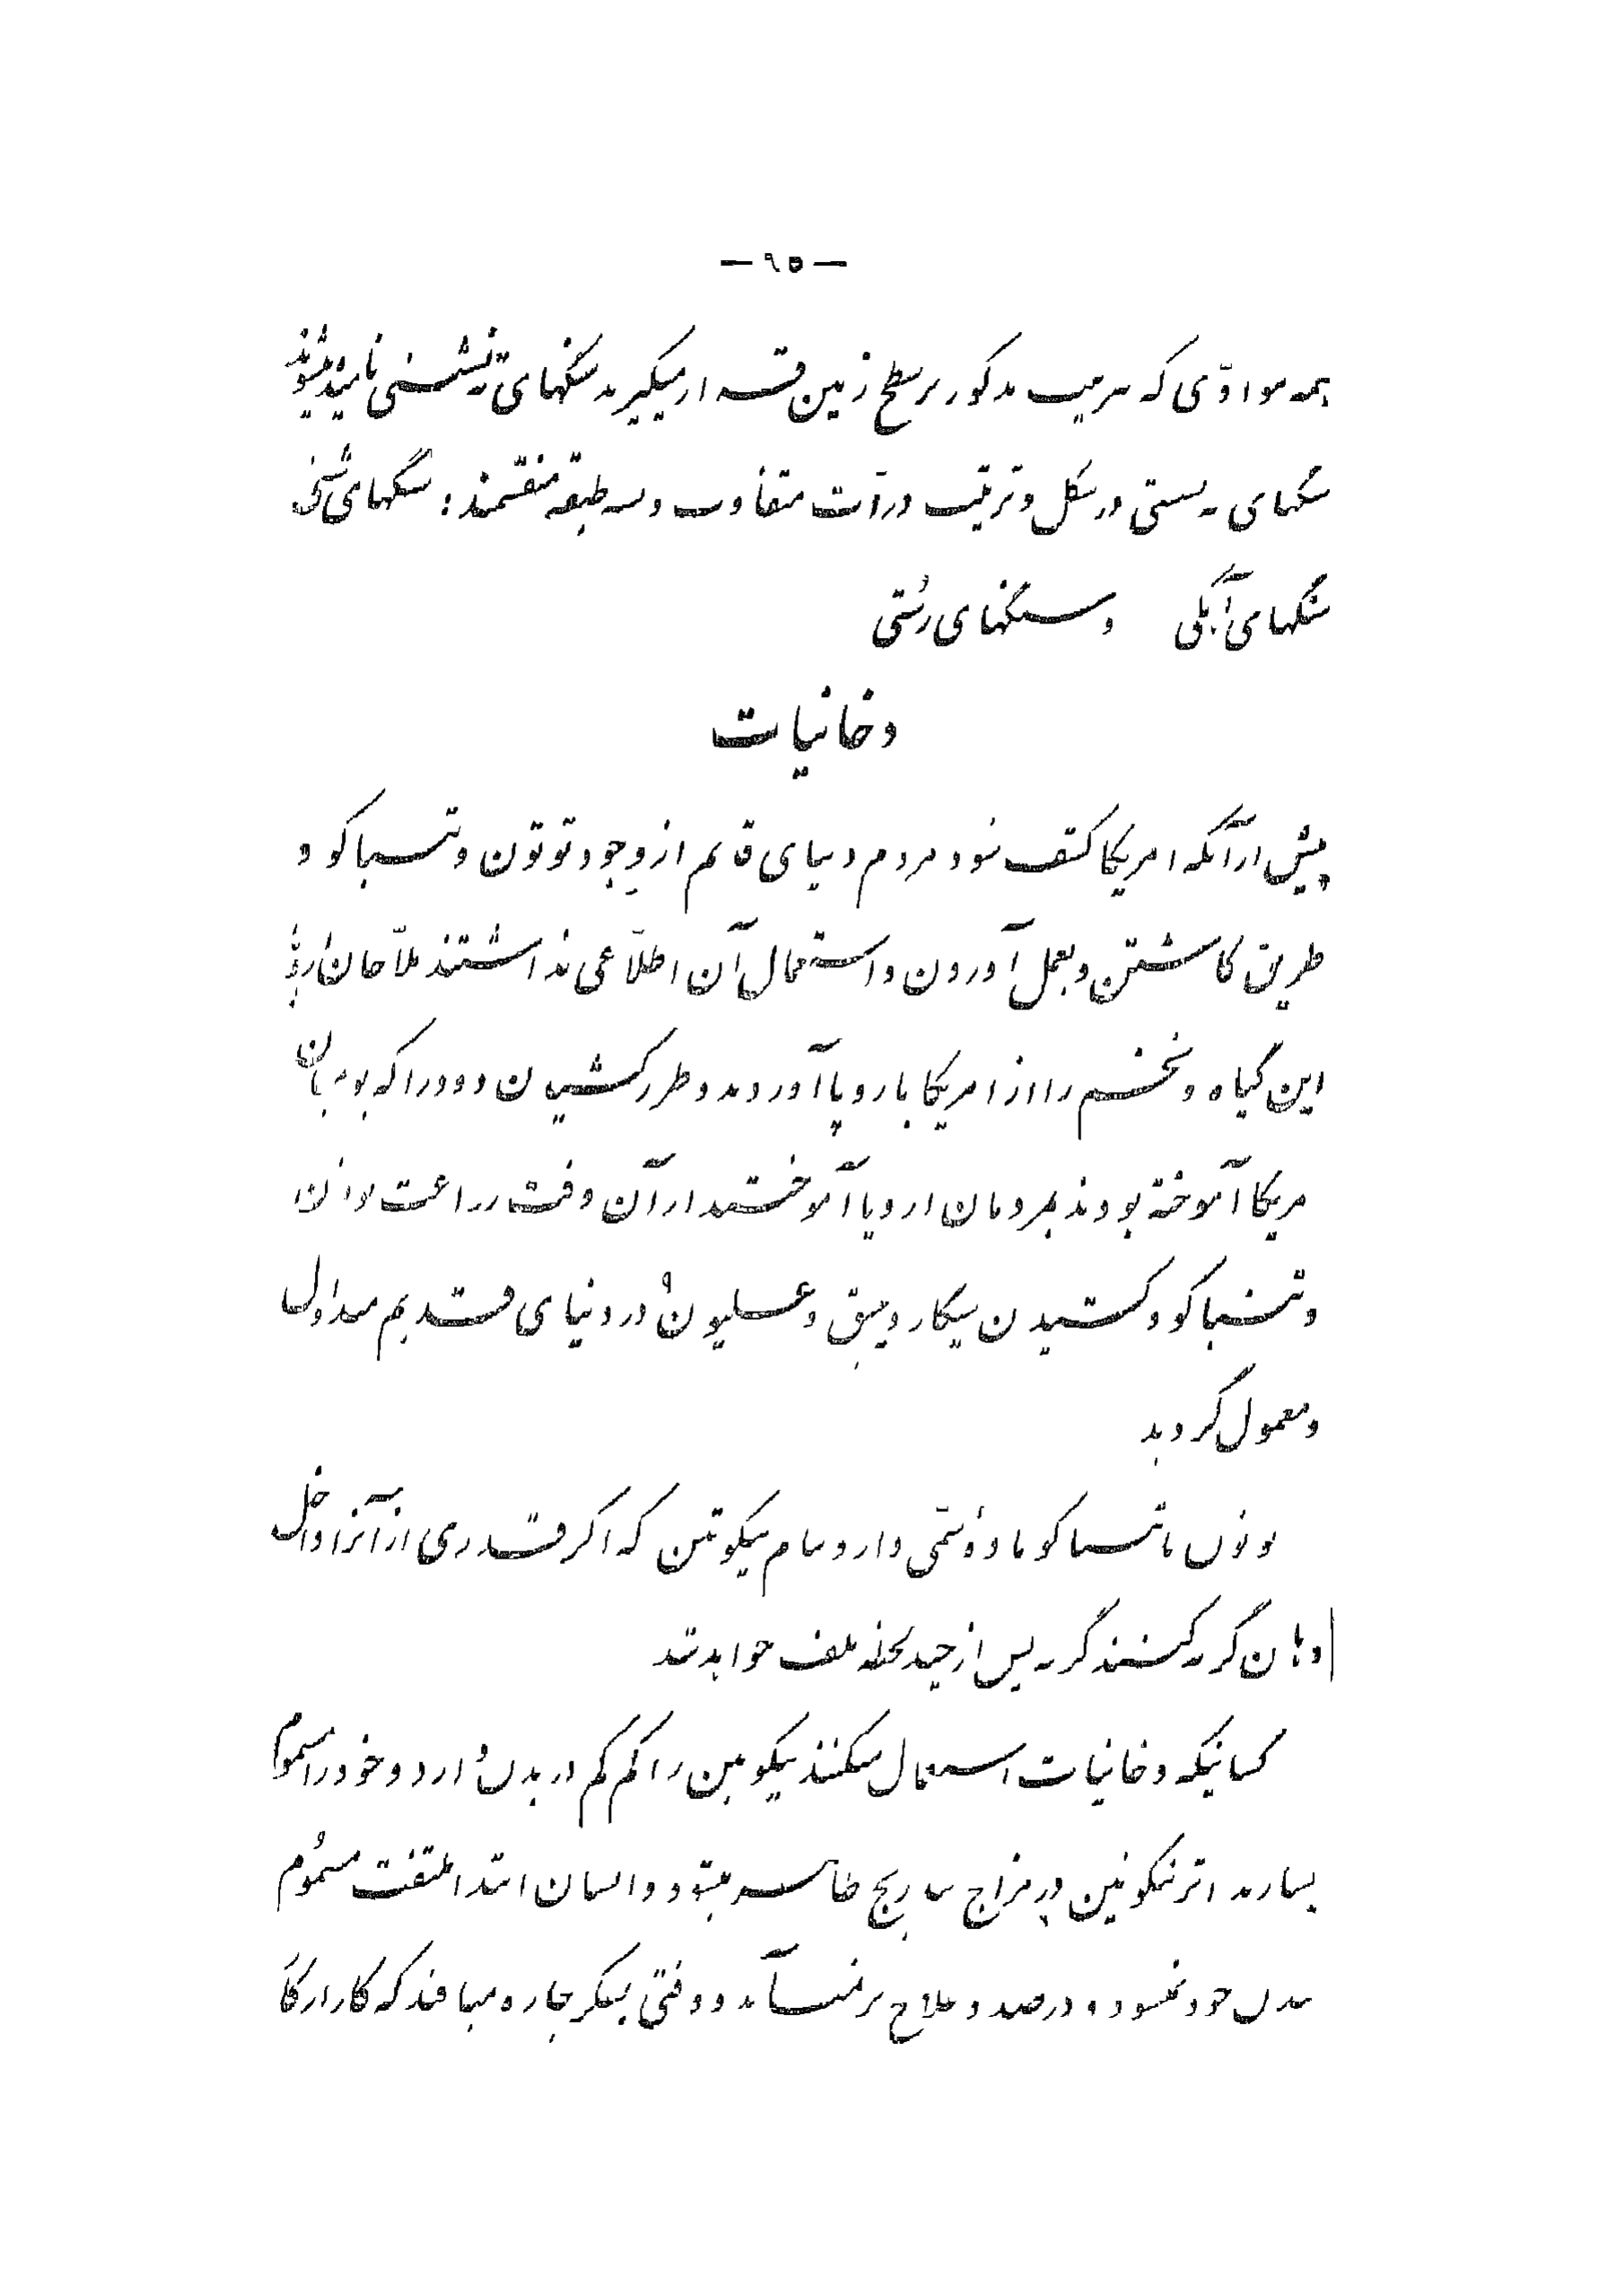 — ٦٥ —
همه موادّی که بترتیب مذکور بر سطح زمین قرار میگیرند سنگهای ته‌نشستی نامیده میشوند
سنگهای ته‌نشستی در شکل و ترتیب ذرات متفاوت و بسه طبقه منقسمند : سنگهای شنی
سنگهای آهکی و سنگهای رستی
دخانیات
پیش از آنکه امریکا کشف شود مردم دنیای قدیم از وجود توتون و تنباکو و
طریق کاشتن و بعمل آوردن و استعمال آن اطلاعی نداشتند ملاحان اروپا
این گیاه و تخم را از امریکا باروپا آوردند و طرز کشیدن دود را که بومیان
امریکا آموخته بودند بمردمان اروپا آموختند از آن وقت زراعت توتون
و تنباکو و کشیدن سیگار و چپق و غلیون در دنیای قدیم متداول
و معمول گردید
توتون یا تنباکو مادهٔ سمّی دارد بنام نیکوتین که اگر قدری از آنرا داخل
دهان گربه کنند گربه پس از چند لحظه تلف خواهد شد
کسانیکه دخانیات استعمال میکنند نیکوتین را کم کم در بدن وارد و خود را مسموم
میسازند اثر نیکوتین در مزاج بتدریج ظاهر میشود و انسان ابتدا ملتفت مسموم
شدن خود نمیشود و درصدد علاج بر نمیآید و وقتی بفکر چاره میافتد که کار از کار